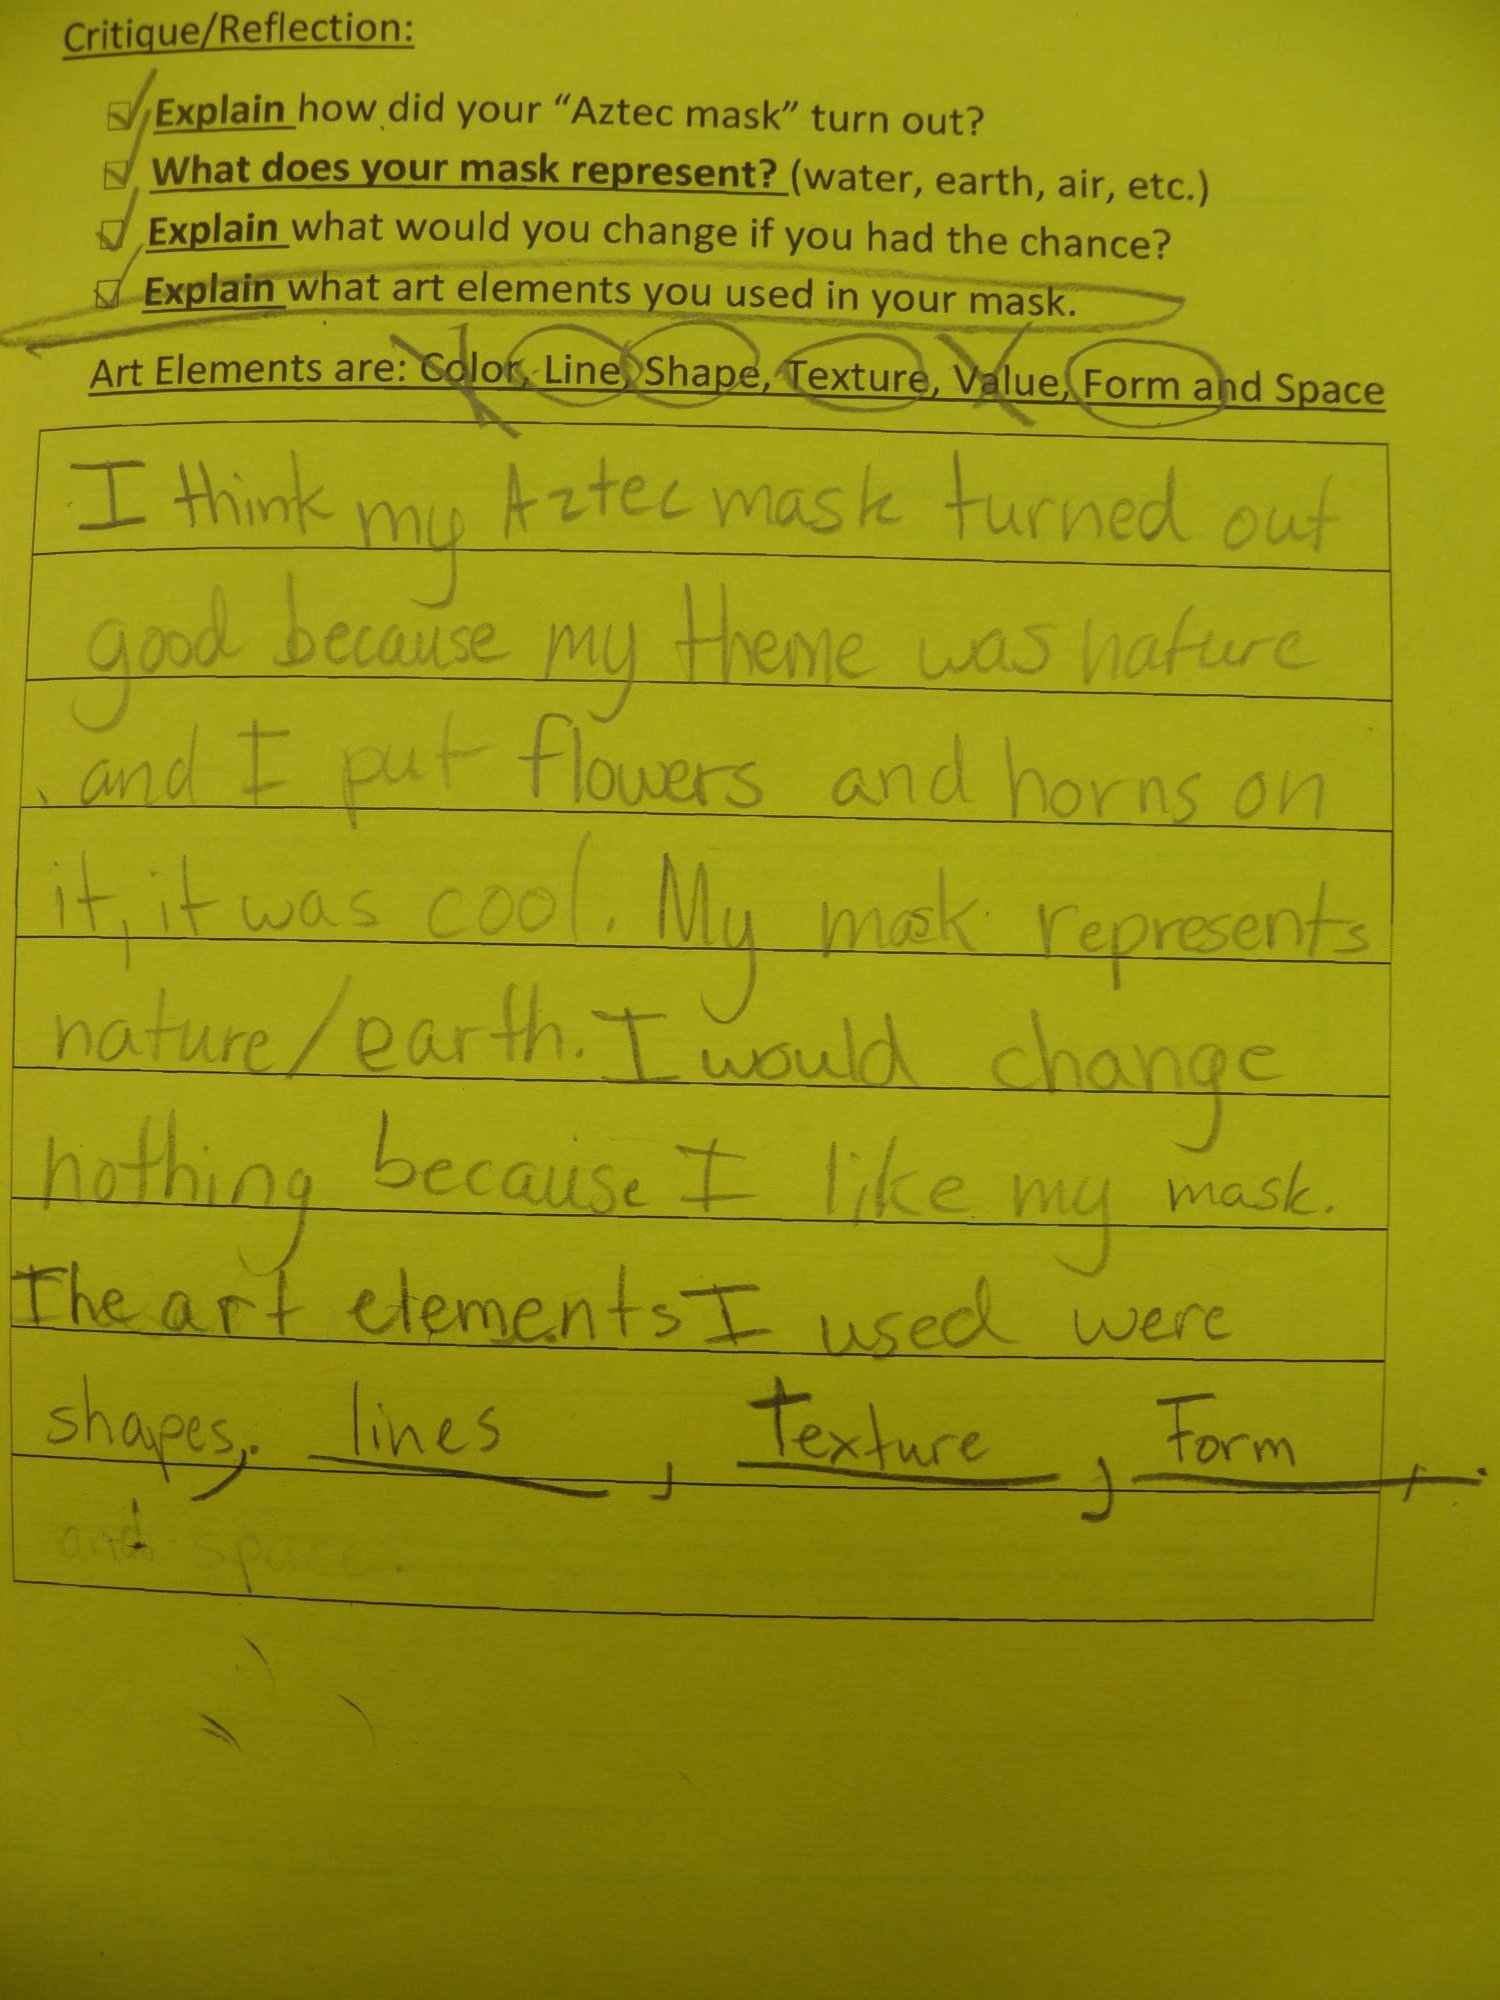 Critique/Reflection:
Explain how did your “Aztec mask” turn out?
What does your mask represent? (water, earth, air, etc.)
Explain what would you change if you had the chance?
Explain what art elements you used in your mask.
Art Elements are: Color, Line, Shape, Texture, Value, Form and Space
I think my Aztec mask turned out
good because my theme was nature
and I put flowers and horns on
it, it was cool. My mask represents
nature/earth. I would change
nothing because I like my mask.
The art elements I used were
shapes, lines, Texture, Form,.
and space.